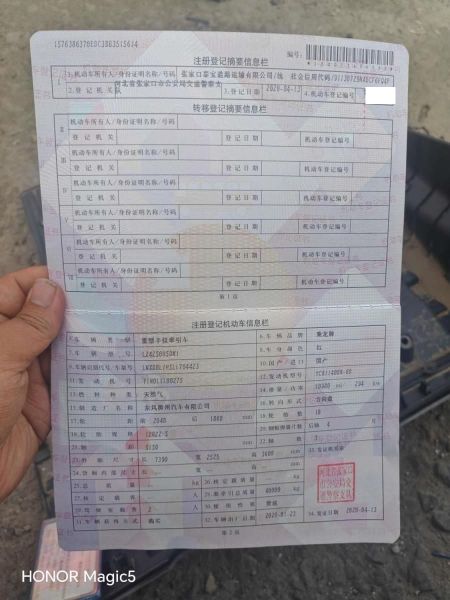 1576386378EDC3BB3515614
注册登记摘要信息栏
编号:
1.机动车所有人/身份证明名称/号码 张家口泰宝道路运输有限公司/统一社会信用代码/
2.登记机关 河北省张家口市公安局交通警察支队 3.登记日期 2020-04-13 4.机动车登记编号
转移登记摘要信息栏
Ⅱ 机动车所有人/身份证明名称/号码
登记机关 登记日期 机动车登记编号
Ⅲ 机动车所有人/身份证明名称/号码
登记机关 登记日期 机动车登记编号
Ⅳ 机动车所有人/身份证明名称/号码
登记机关 登记日期 机动车登记编号
Ⅴ 机动车所有人/身份证明名称/号码
登记机关 登记日期 机动车登记编号
Ⅵ 机动车所有人/身份证明名称/号码
登记机关 登记日期 机动车登记编号
Ⅶ 机动车所有人/身份证明名称/号码
登记机关 登记日期 机动车登记编号
第1页
注册登记机动车信息栏
5.车辆类型 重型半挂牵引车 6.车辆品牌 乘龙牌
7.车辆型号 8.车身颜色 红
9.车辆识别代号/车架号 10.国产/进口 国产
11.发动机号 12.发动机型号
13.燃料种类 天然气 14.排量/功率 ml/ kw
15.制造厂名称 东风柳州汽车有限公司 16.转向形式 方向盘
17.轮距 前 2040 后 1860 mm 18.轮胎数 10
19.轮胎规格 20.钢板弹簧片数 后轴 4 片
21.轴距 mm 22.轴数 3
23.外廓尺寸 长 宽 高 mm
24.货厢内部尺寸 长 宽 高 mm
25.总质量 kg 26.核定载质量 kg
27.核定载客 人 28.准牵引总质量 40000 kg
29.驾驶室载客 2 人 30.使用性质 货运
31.车辆获得方式 购买 32.车辆出厂日期 34.发证日期 2020-04-13
33.发证机关章
河北省张家口市公安局交通警察支队
第2页
HONOR Magic5